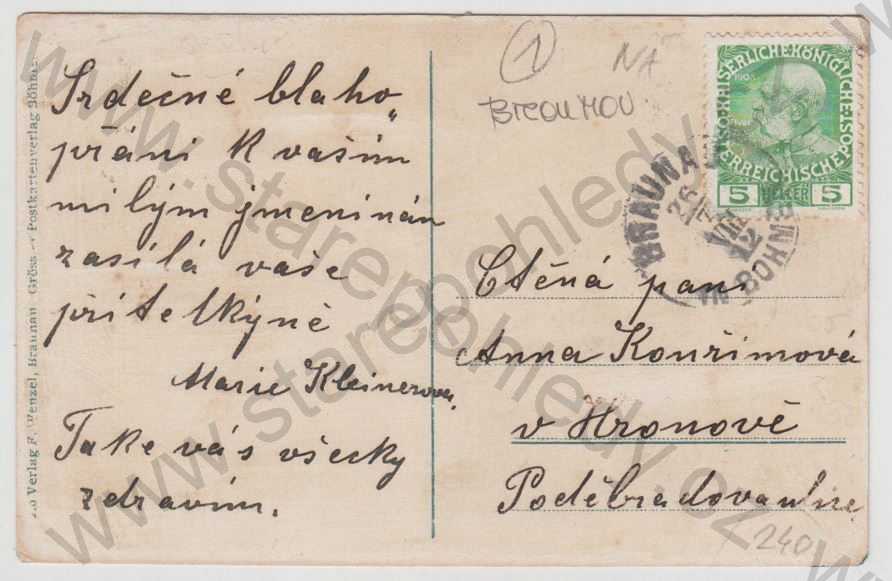 Srdečné blaho„
přání k vašim
milým jmeninán
zasílá vaše
přítelkýně
Marie Kleinerova.
Take vás všecky
zdravím.
1
NÁ
BROUMOV
KAISERLICHEKÖNIGLICHE
ÖSTERREICHISCHEPOST
1908
5 HELLER 5
BRAUNAU
IN BÖHMEN
26 VIII 12
Ctěná paní
Anna Kouřimová
v Hronově
Poděbradova ulice
240
Verlag F. Wenzel, Braunau
Postkartenverlag
www.starepohledy.cz